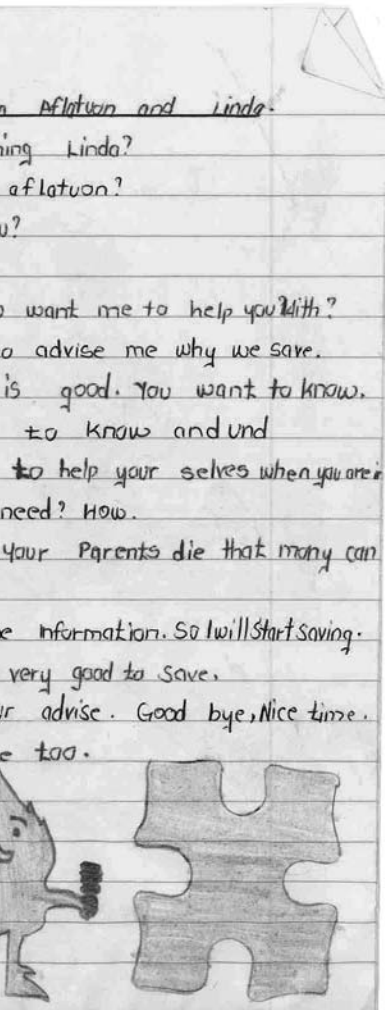 Aflatuon and Linda.
ning Linda?
aflatuon?
u?
want me to help you With?
o advise me why we save.
is good. You want to know.
to know and und
to help your selves when you are i
need? How.
your Parents die that mony can
e nformation. So I will start saving.
very good to save.
ur advise. Good bye, Nice time.
e too.